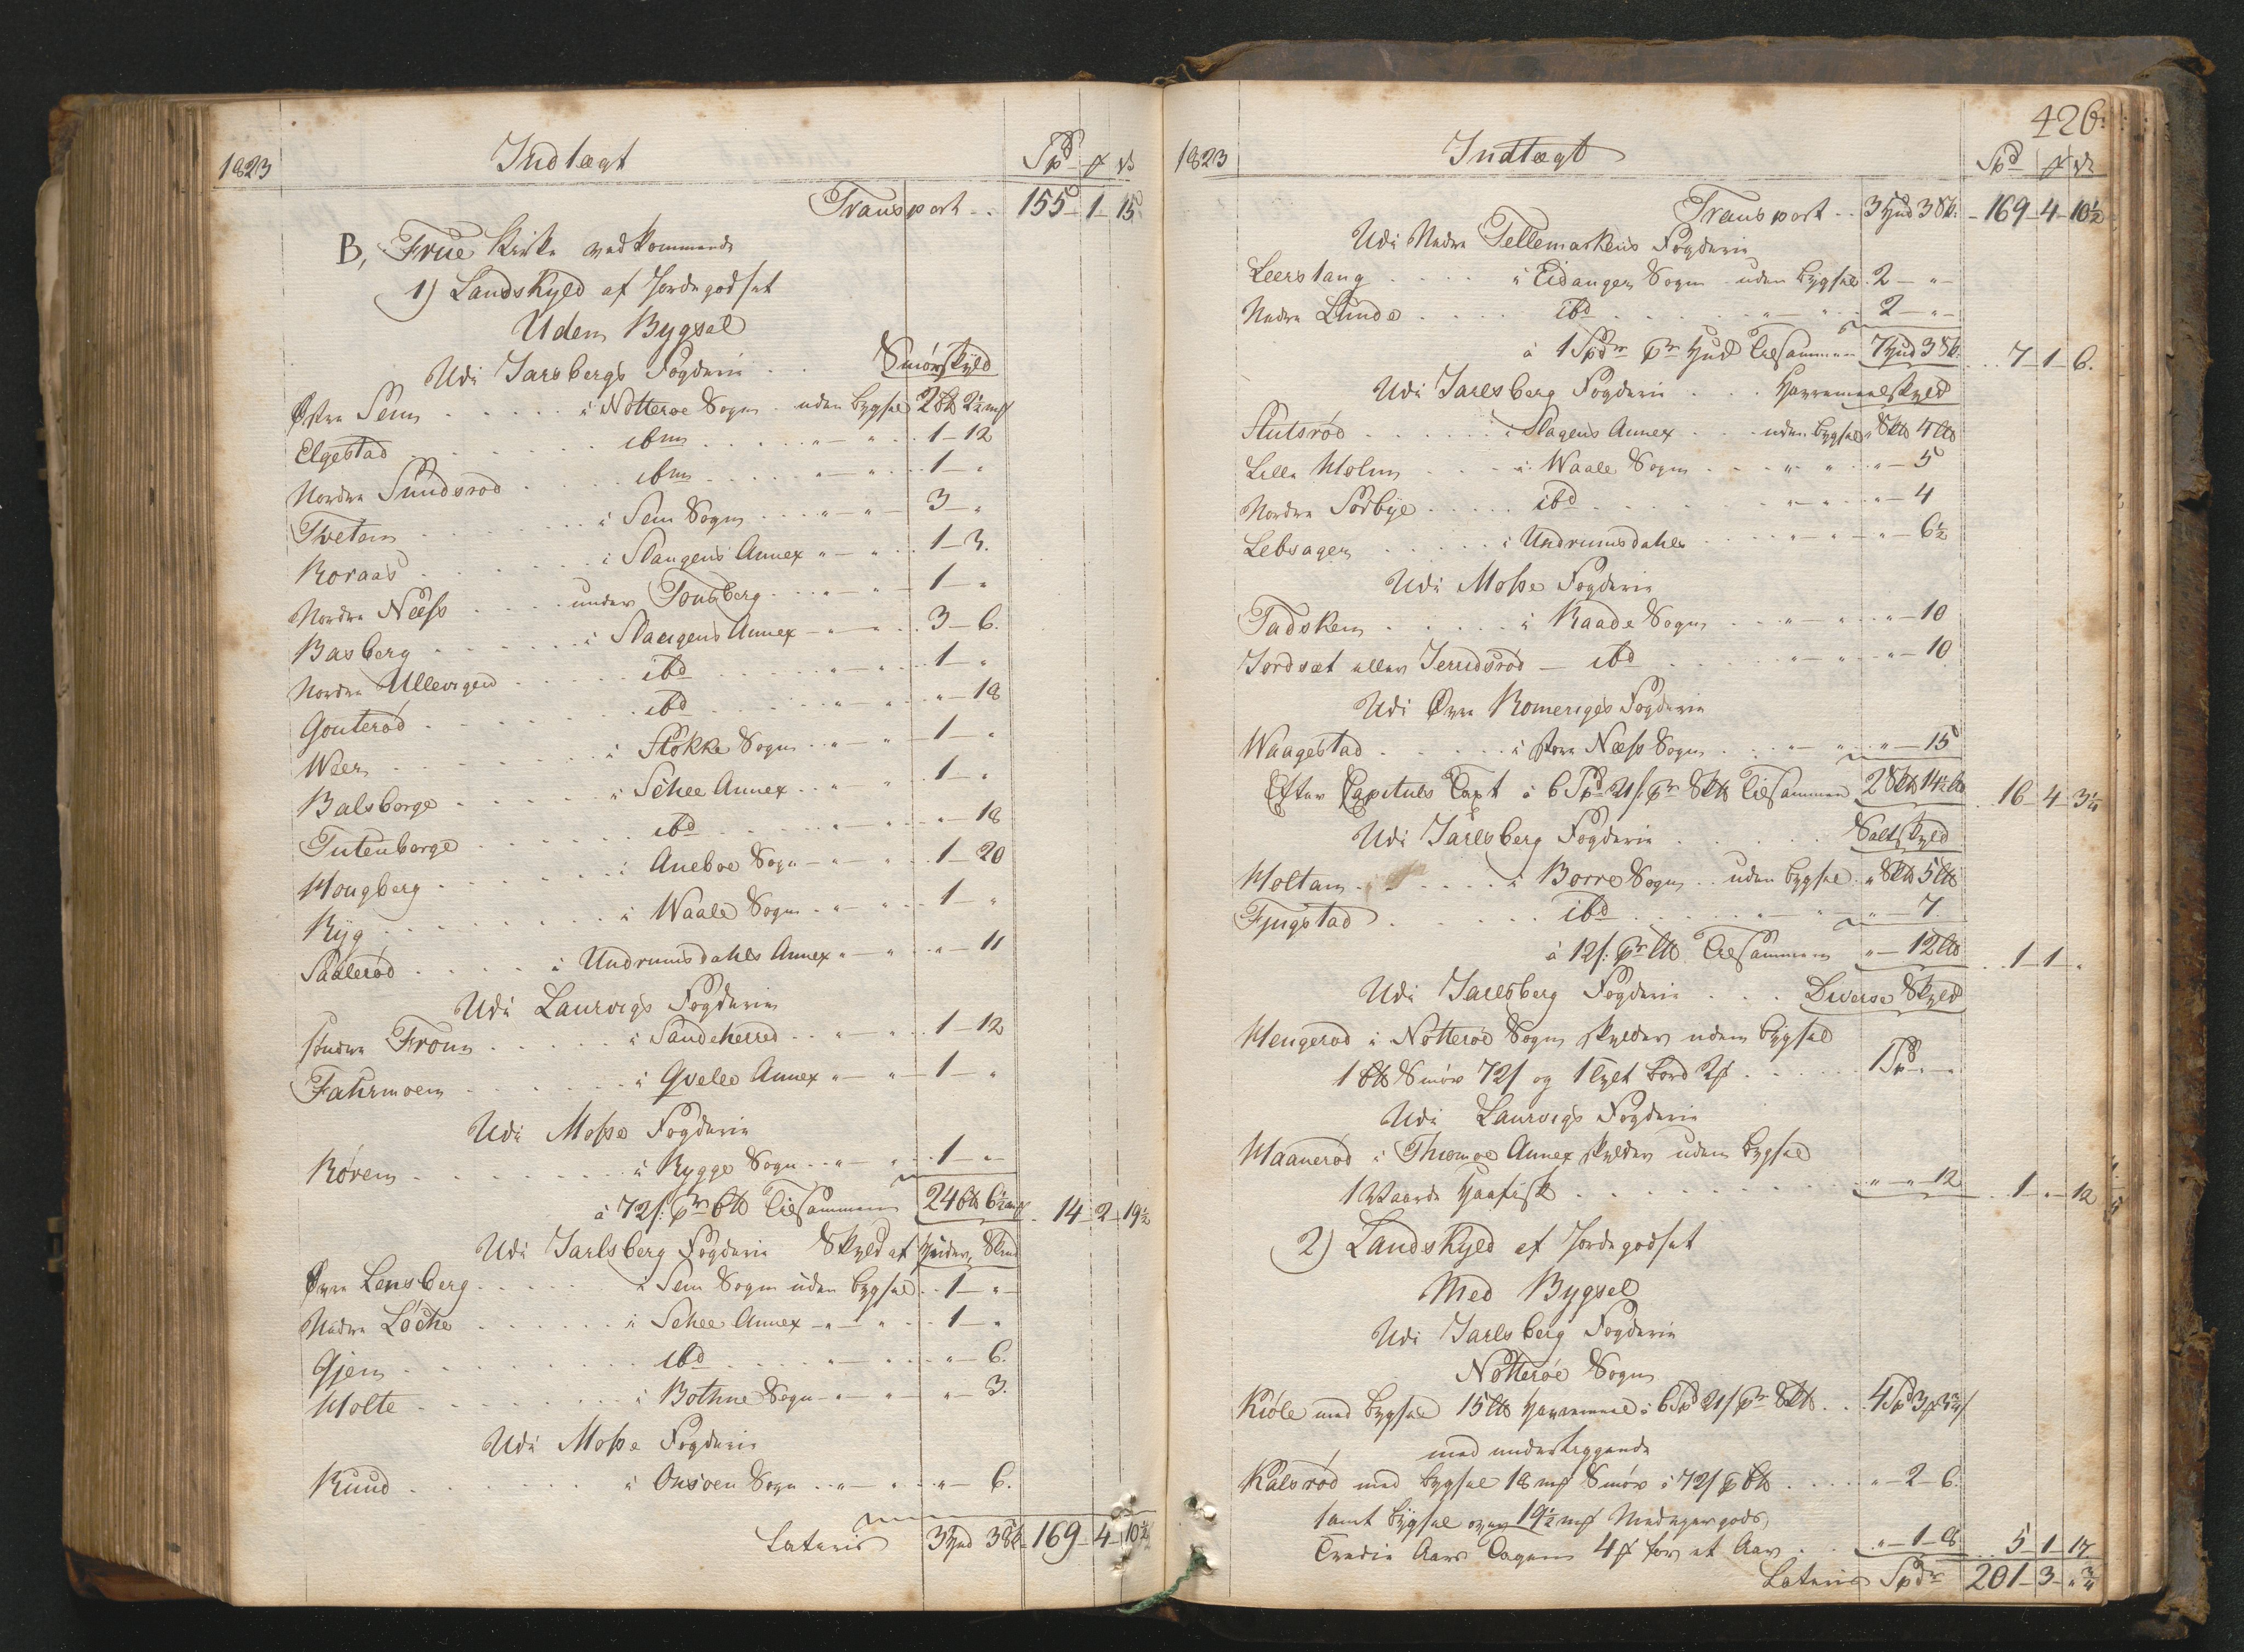 1823 Indtægt Spd ƒ ß
Transport . . 155 - 1 - 15
B, Frue Kirke vedkommende
1) Landskyld af Jordegodset
Uden Bygsel
Udi Jarsbergs Fogderie . . Smørskyld
Østre Sem . . . . . i Nøtterøe Sogn . uden bygsel 2 b℔ 2½ mk
Elgestad . . . . . ibm . . . . . " — " . . 1 — 12
Nordre Sundsrød . . . . ibm . . . . . " — " . . 1 — "
Tvetom . . . . . i Sem Sogn . . . " — " — 3 — "
Roraas . . . . . i Slaugens Annex " — " . . 1 — 3.
Nordre Næss . . . . under Tonsberg . . . " — " — 1 — "
Basberg . . . . . i Slaugens Annex — " — " . . 3 — 6.
Nordre Ullevigen . . . . . ibd . . . . . " — " . . 1 — "
Gouterød . . . . . ibd . . . . . " — " . . " — 18
Weer . . . . . i Stokke Sogn . . " — " — 1 — "
Balsborge . . . . . i Schee Annex . . " — " 1 — "
Tutenborge . . . . . ibd . . . . . " — " . . " — 18
Hougberg . . . . . i Aneboe Sogn — " — " . . 1 — 20
Ryg . . . . . i Waale Sogn . " — " . . 1 — "
Saalerød . . . . . i Undrumsdahls Annex " — " . . " — 11
Udi Laurvigs Fogderie
søndre Fron . . . . . i Sandeherred . . " — " . . 1 — 12
Fahrmoen . . . . . i Qvelle Annex " — " — 1 — "
Udi Mosse Fogderie
Røren . . . . . i Rygge Sogn . . " — " . . 1 — "
à 72 s: pr b℔ Tilsammen 24 b℔ 6½ mk . 14 - 2 - 19½
Udi Jarlsberg Fogderie Skyld af Huder, Skind
Øvre Lensberg . . . . . i Sem Sogn uden bygsel . . 1 — " —
Nedre Løche . . . . . i Schee Annex — " — " . . . 1 — "
Gjem . . . . . ibd . . . . . " — " . . " — 6.
Holte . . . . . i Bothne Sogn — " — " — " — 3.
Udi Mosse Fogderie
Ruud . . . . . i Onsoen Sogn . . " — " . . " — 6.
Lateris 3 hud 3 Sk. 169 - 4 - 10½
426.
1823 Indtægt Spd ƒ ß
Transport . . 3 hud 3 Sk. - 169 - 4 - 10½
Udi Nedre Tellemarkens Fogderie
Leerstang . . . . . i Eidanger Sogn — uden bygsel . 2 — " —
Nedre Lunde . . . . . ibd . . . . . " — " . . 2 — " —
à 1 Spdr pr Hud Tilsammen 7 hud 3 Sk. . . . 7 - 1 - 6.
Udi Jarlsberg Fogderie . . . Havremeelskyld
Slutsrød . . . . . i Slagens Annex . . . uden bygsel " Sk℔ 4 L℔
Lille Holm . . . . . i Waale Sogn . . . " — " . . " — 5
Nordre Sørbye . . . . . ibd . . . . . " — " . . " — 4
Lebsager . . . . . i Undrumsdahls . . . . " — " — " — 6½
Udi Mosse Fogderie
Tadsken . . . . . i Raade Sogn . . . " — " . . " — 10
Jordsæt eller Jerudsrød — ibd . . . . . " — " — " — 10
Udi Øvre Romeriges Fogderie
Waagestad . . . . . i store Næss Sogn . . . " — " — " — 15
Efter Capituls Taxt à 6 Spd 21 s. pr Sk℔ Tilsammen 2 Sk℔ 14½ L℔ . . 16 - 4 - 3¼
Udi Jarlsberg Fogderie . . . . Saltskyld
Holtan . . . . . i Borre Sogn . . uden bygsel . " Sk℔ 5 L℔
Fjugstad . . . . . ibd . . . . . " — " — " — 7.
à 12 s: pr L℔ Tilsammen " — 12 L℔ . . 1 - 1 - "
Udi Jarlsberg Fogderie . . . Diverse Skyld
Hengerød i Nøtterøe Sogn skylder uden bygsel
1 b℔ Smør 72 s og 1 tylt Bord 2 ƒ . . . . . 1 Sp. " —
Udi Laurvigs Fogderie
Haanerød i Thiømoe Annex skylder uden bygsel
1 Waarde Haafisk . . . . . " — " — 12 . . 1 - " - 12
2) Landskyld af Jordegodset
Med Bygsel
Udi Jarlsberg Fogderie
Nøtterøe Sogn
Kiøle med bygsel 15 L℔ Havremeel à 6 Spd 21 s pr Sk℔ . . 4 Spd 3 ƒ 3¾ s
med underliggende
Kalsrød med bygsel 18 mk Smør à 72 s pr b℔ . . . . . " — 2 — 6.
samt bygsel over 19½ mk Medeyergods,
Tredie Aars Tagen 4 ƒ for et Aar . . " — 1 — 8. . . 5 - 1 - 17
Lateris Spdr 201 - 3 - " ¾